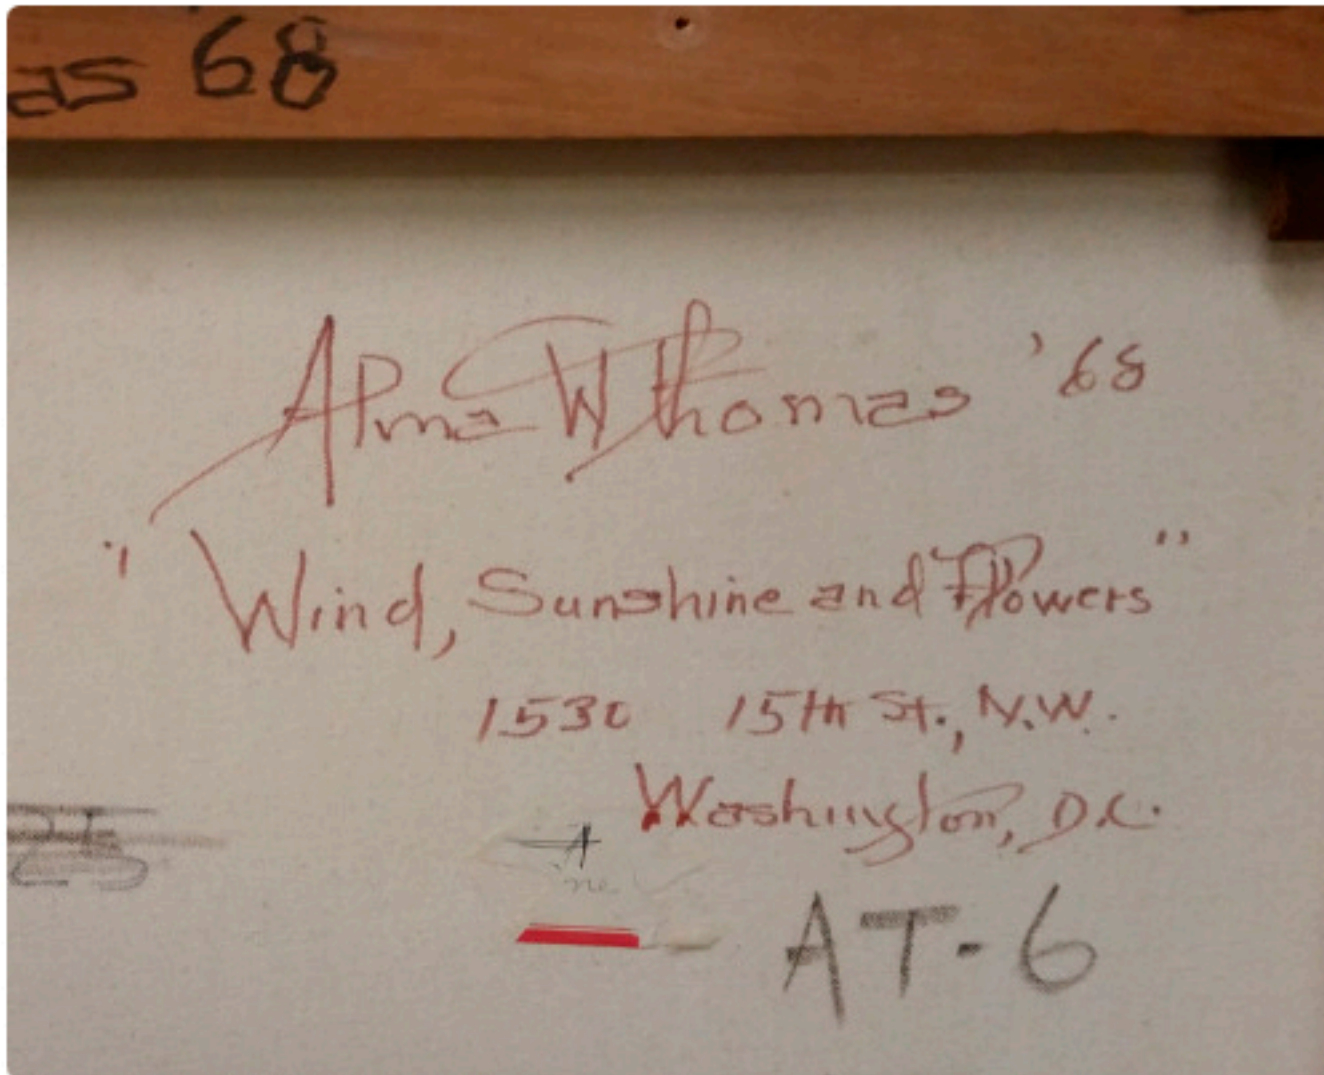 as 68
Alma W Thomas '68
"Wind, Sunshine and Flowers"
1530 15th St., N.W.
Washington, D.C.
A
AT-6